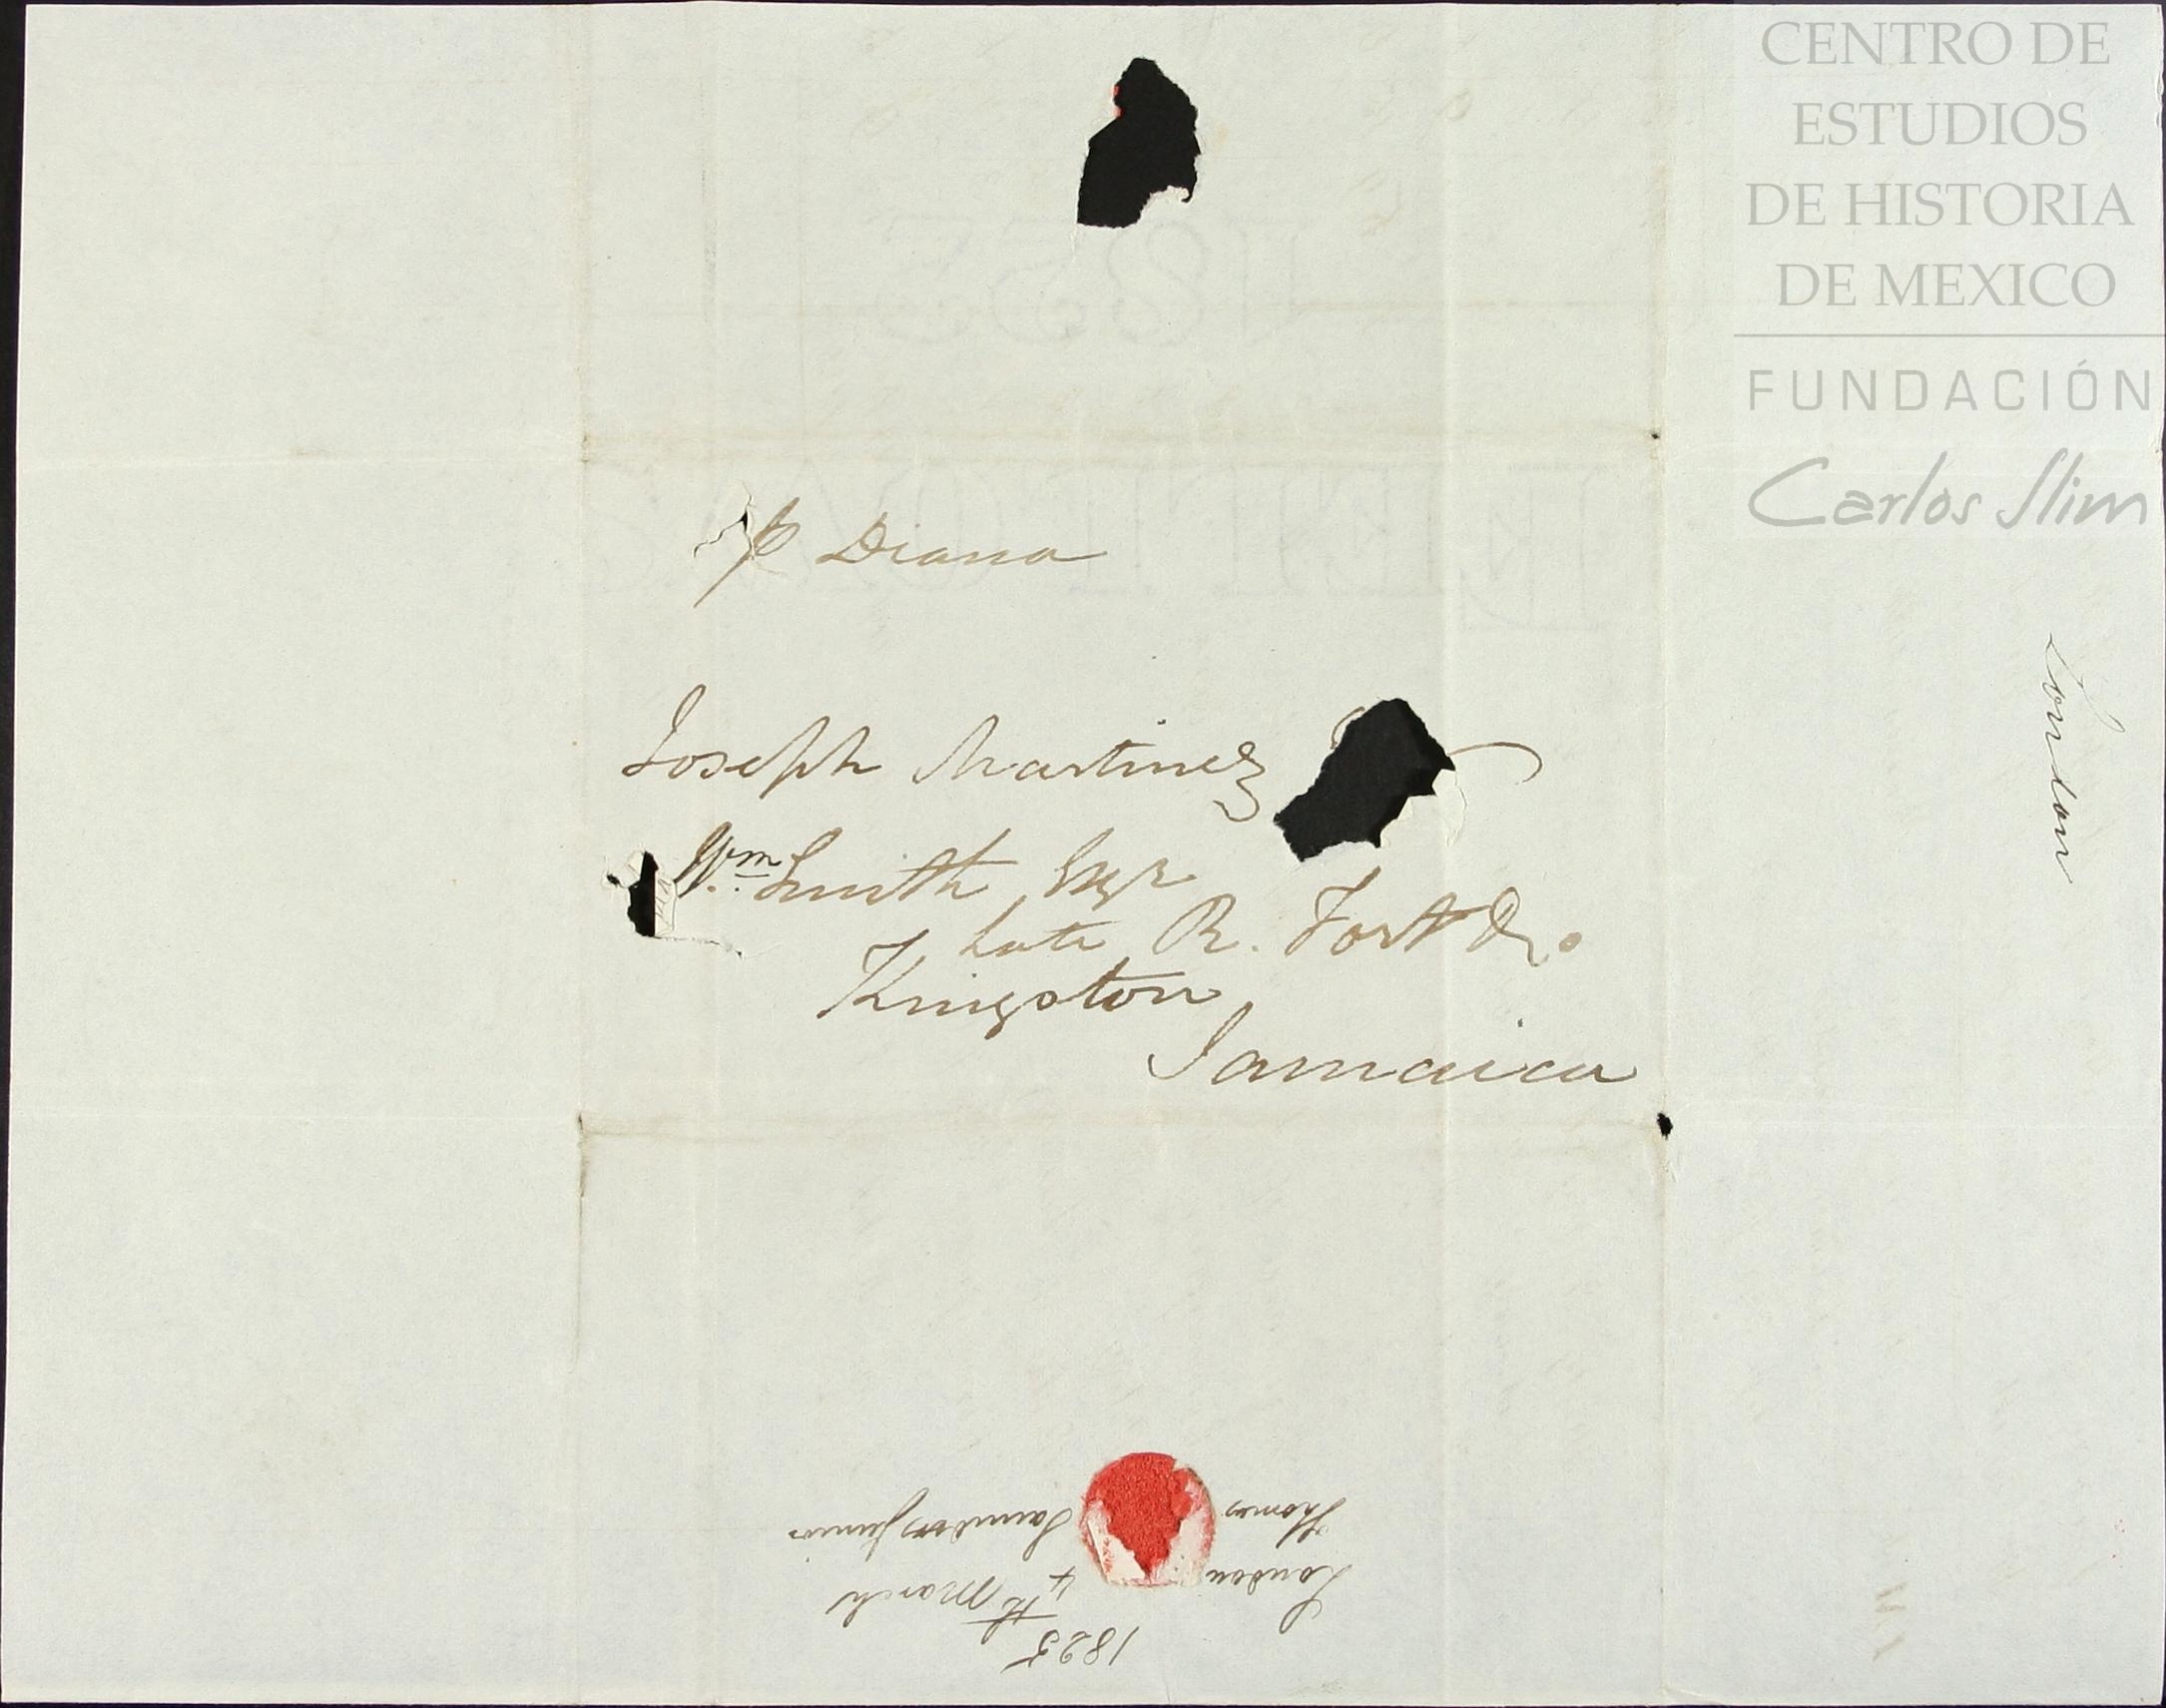 CENTRO DE
ESTUDIOS
DE HISTORIA
DE MEXICO
FUNDACIÓN
Carlos Slim
p Diana
Joseph Martinez
Wm. Smith Esqr
late R. Fort
Kingston
Jamaica
London
1825
London 4th March
Thomas Saunders Junior